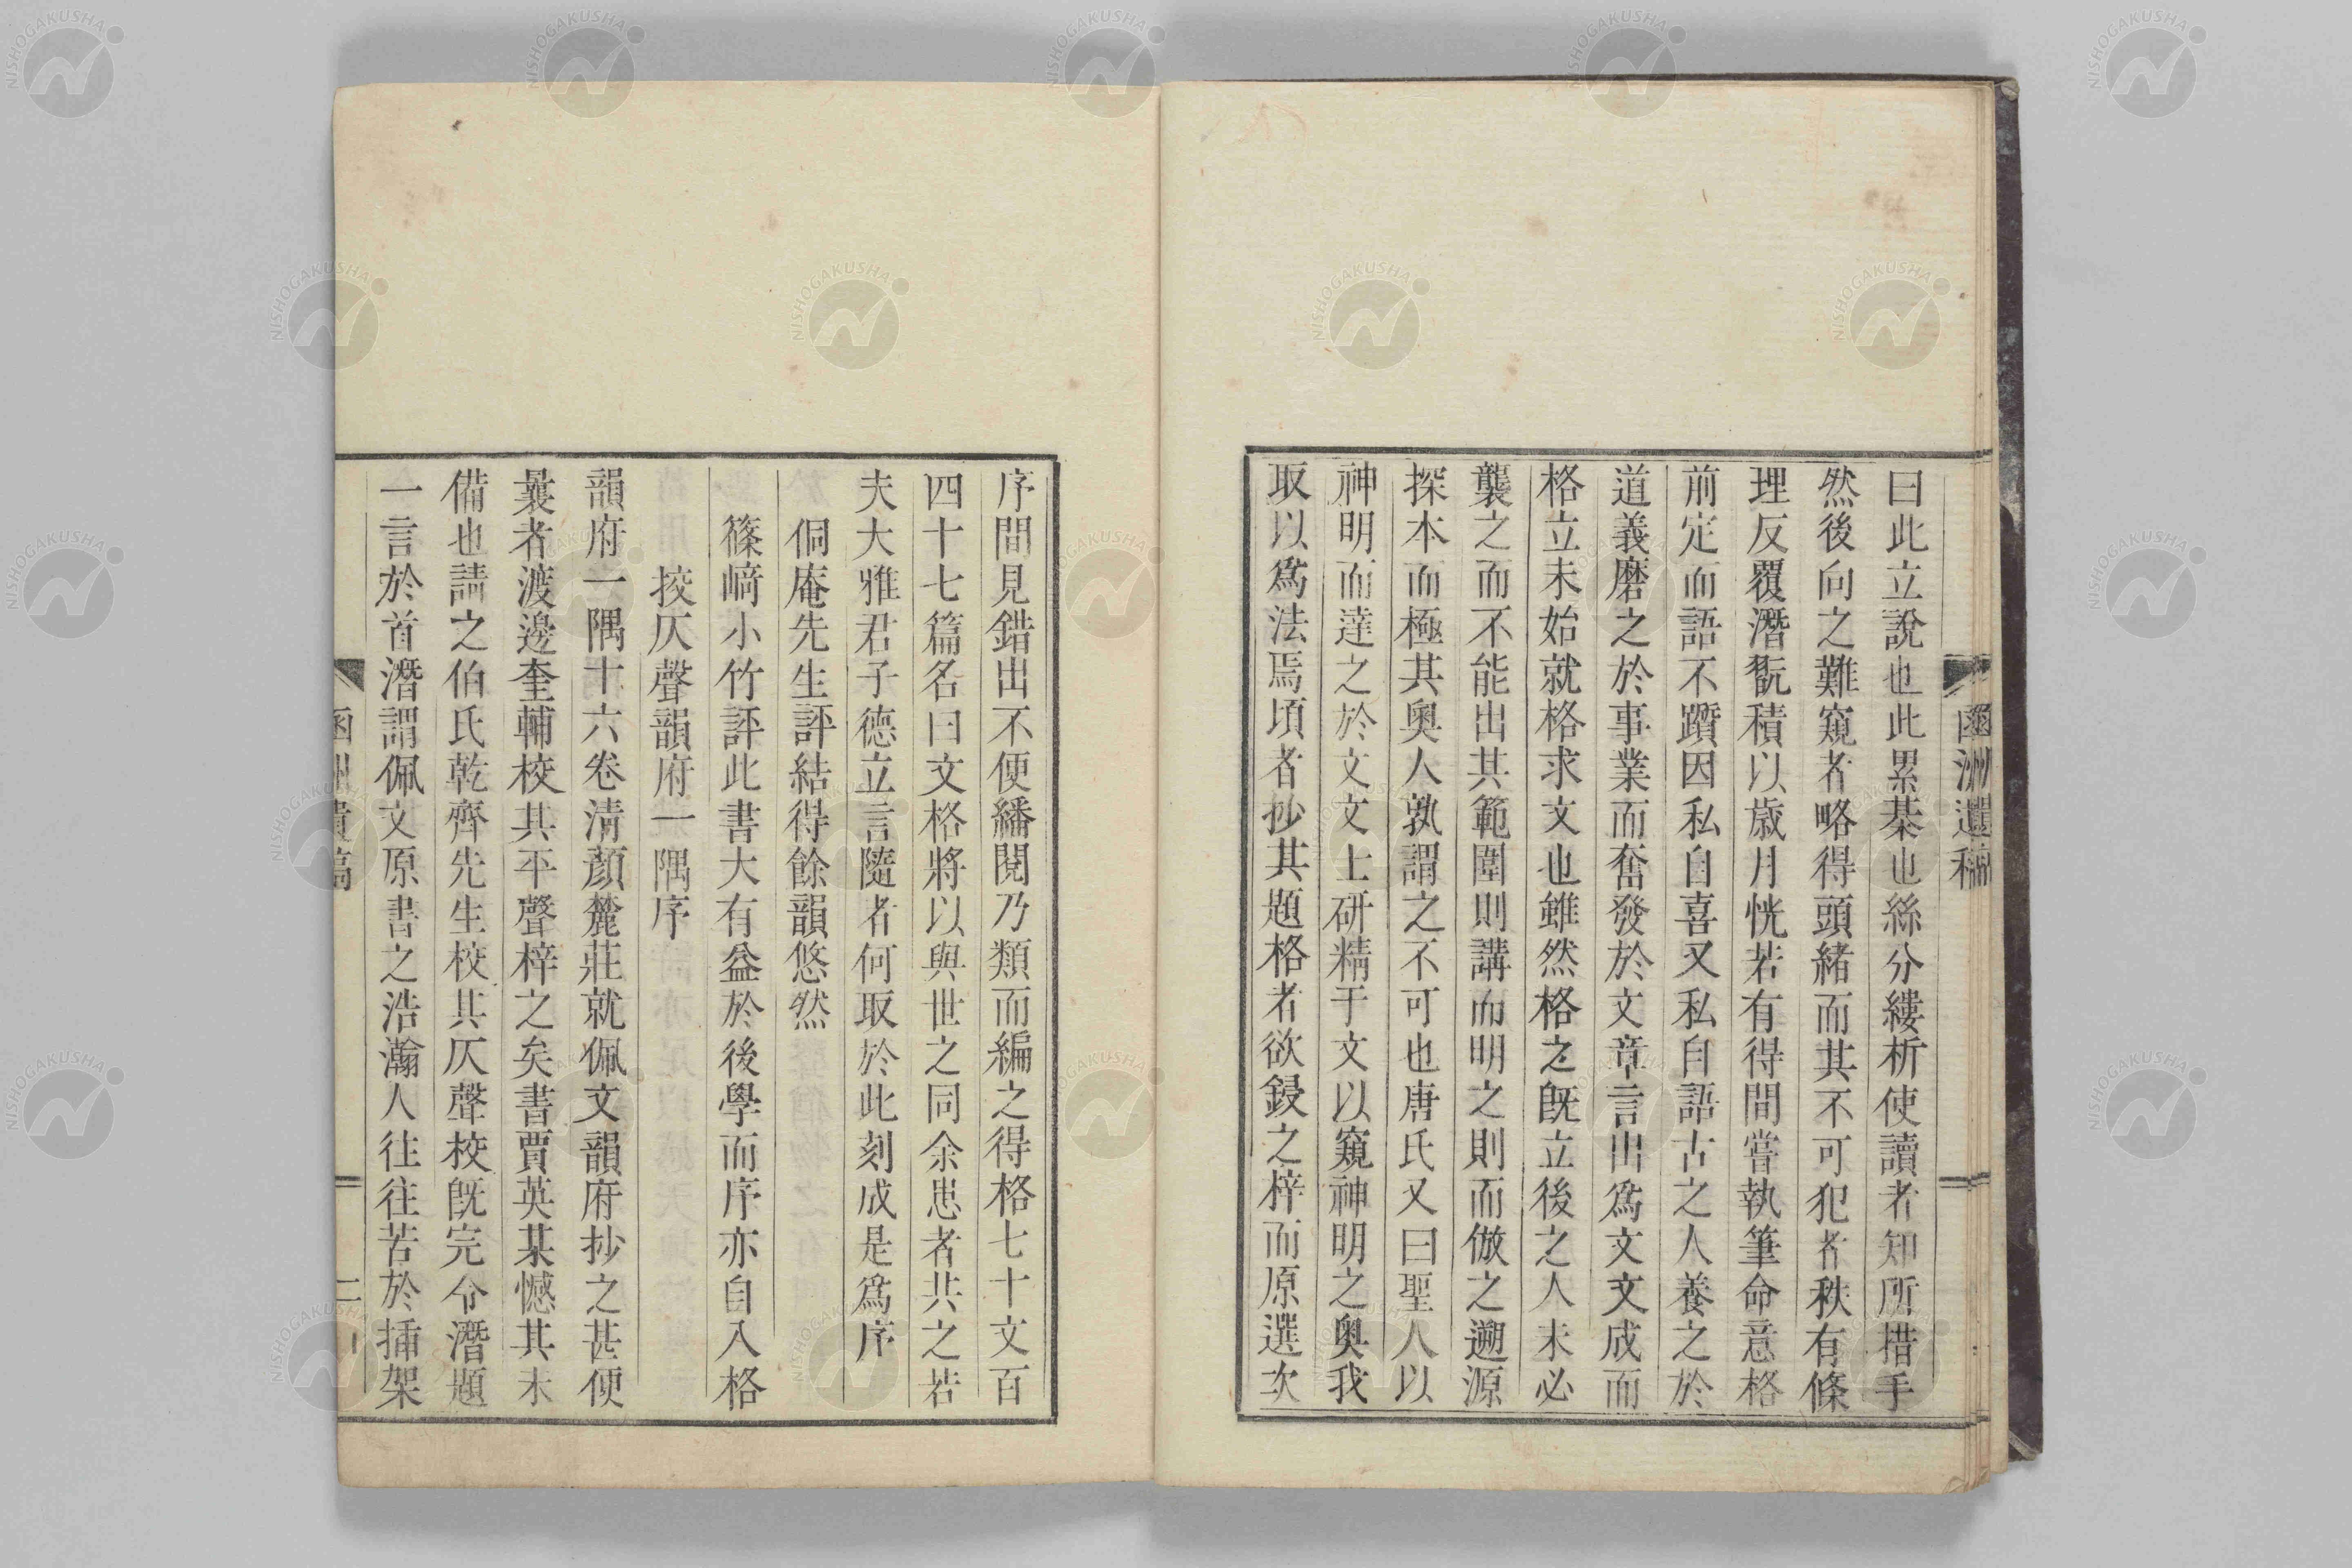 函洲遺稿
曰此立說也此累棊也絲分縷析使讀者知所措手
然後向之難窺者略得頭緒而其不可犯者秩有條
理反覆潛翫積以歲月恍若有得間嘗執筆命意格
前定而語不躓因私自喜又私自語古之人養之於
道義磨之於事業而奮發於文章言出爲文文成而
格立未始就格求文也雖然格之旣立後之人未必
襲之而不能出其範圍則講而明之則而倣之遡源
探本而極其奧人孰謂之不可也唐氏又曰聖人以
神明而達之於文文士研精于文以窺神明之奧我
取以爲法焉頃者抄其題格者欲鋟之梓而原選次
序間見錯出不便繙閱乃類而編之得格七十文百
四十七篇名曰文格將以與世之同余患者共之若
夫大雅君子德立言隨者何取於此刻成是爲序
侗庵先生評結得餘韻悠然
篠﨑小竹評此書大有益於後學而序亦自入格
挍仄聲韻府一隅序
韻府一隅十六卷淸顏麓莊就佩文韻府抄之甚便
曩者渡邊奎輔校其平聲梓之矣書賈英某憾其未
備也請之伯氏乾齊先生校其仄聲校旣完令潛題
一言於首潛謂佩文原書之浩瀚人往往苦於揷架
函洲遺稿
二
NISHOGAKUSHA